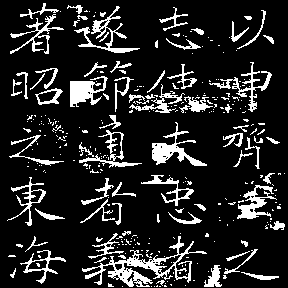 以申齊士之
志使夫忠者
遂節通者義
著昭之東海